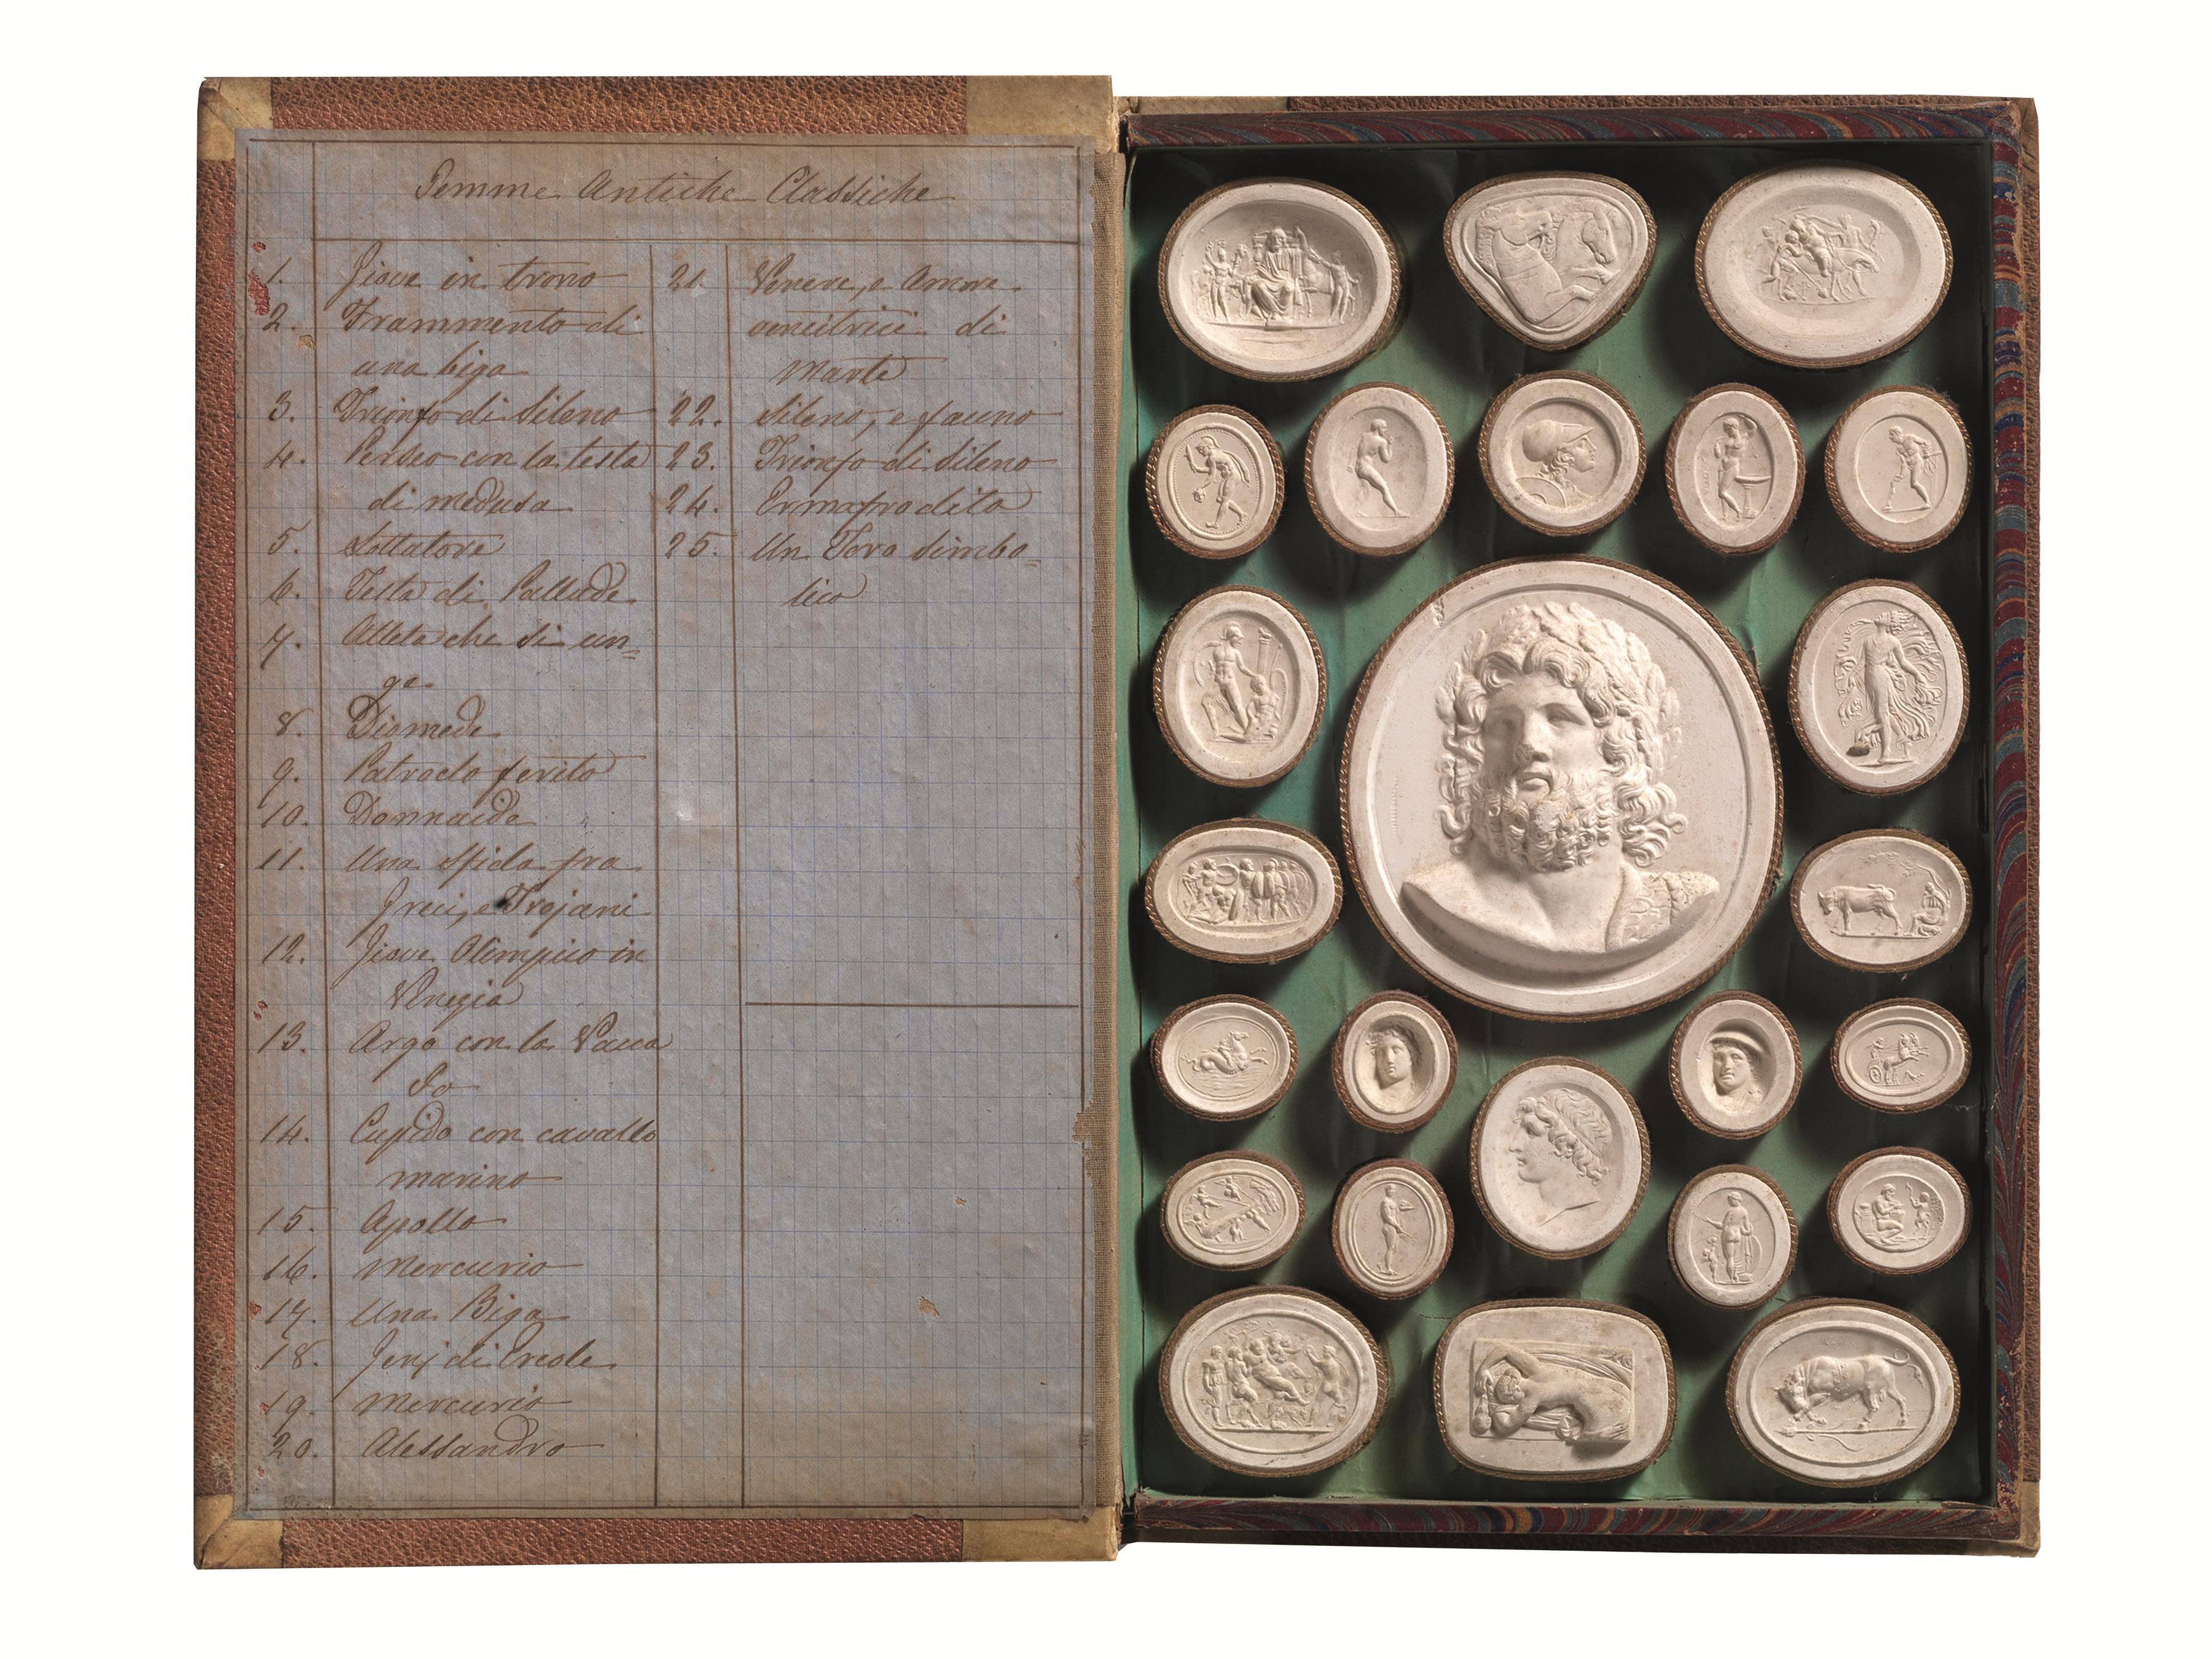 Gemme Antiche Classiche
1. Giove in trono
2. Frammento di
una biga
3. Trionfo di Sileno
4. Perseo con la testa
di medusa
5. Lottatore
6. Testa di Pallade
7. Atleta che si un=
ge
8. Diomede
9. Patroclo ferito
10. Donnaide
11. Una sfida fra
Greci, e Trojani
12. Giove Olimpico in
Venezia
13. Argo con la Vacca
Io
14. Cupido con cavallo
marino
15. Apollo
16. Mercurio
17. Una Biga
18. Genj di Ercole
19. Mercurio
20. Alessandro
21. Venere, e Amore
vincitrici di
Marte
22. Sileno, e fauno
23. Trionfo di Sileno
24. Ermafrodito
25. Un Toro Simbo=
lico